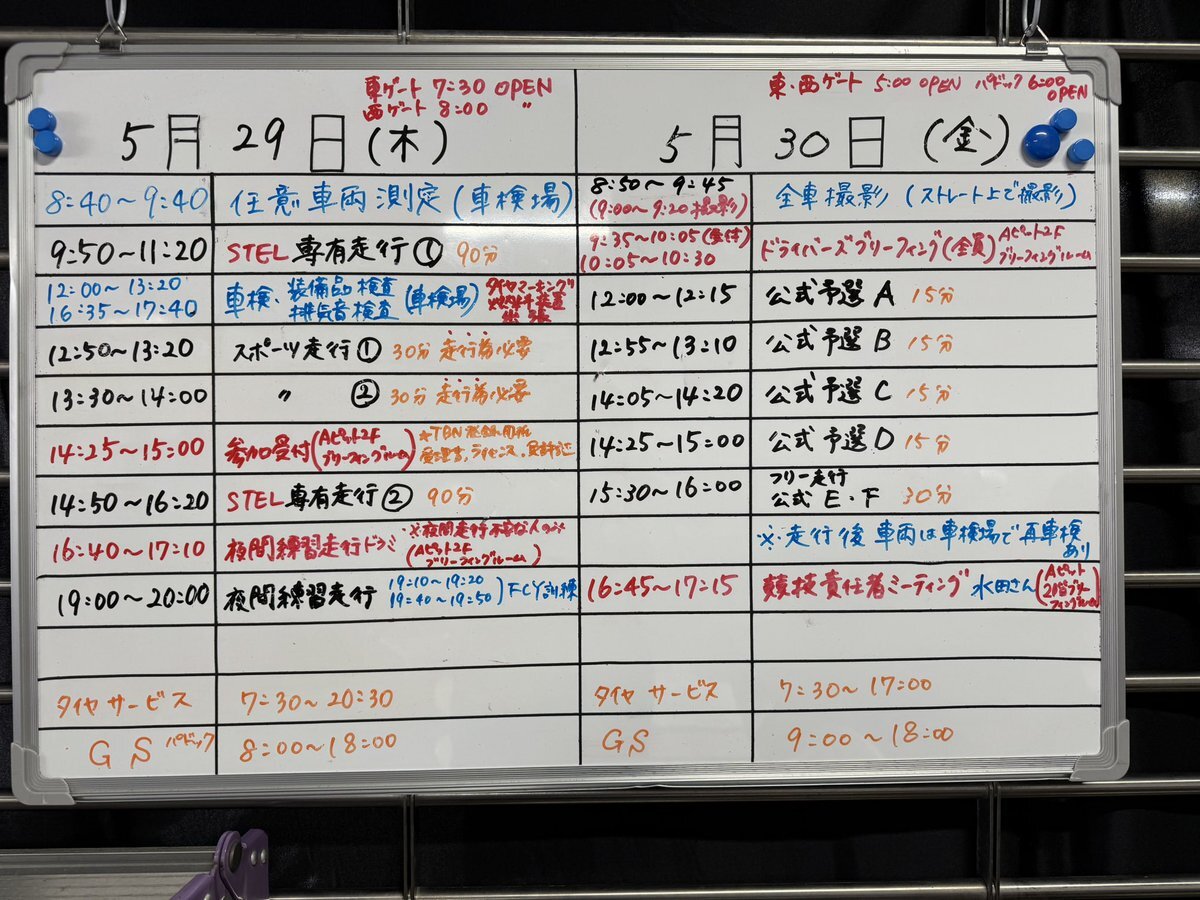 東ゲート 7:30 OPEN
西ゲート 8:00 〃
5月 29日 (木)
8:40～9:40 任意車両測定 (車検場)
9:50～11:20 STEL専有走行① 90分
12:00～13:20
16:35～17:40
車検・装備品検査
排気音検査
(車検場)
タイヤマーキング
12:50～13:20 スポーツ走行① 30分 走行券必要
13:30～14:00 〃 ② 30分 走行券必要
14:25～15:00 参加受付 (Aピット2F
ブリーフィングルーム)
受理書、ライセンス、
14:50～16:20 STEL専有走行② 90分
16:40～17:10 夜間練習走行ドラミ
※夜間走行不安な人のみ
(Aピット2F
ブリーフィングルーム)
19:00～20:00 夜間練習走行
19:10～19:20
19:40～19:50) FCY訓練
タイヤサービス 7:30～20:30
GS パドック 8:00～18:00
東・西ゲート 5:00 OPEN パドック 6:00
OPEN
5月 30日 (金)
8:50～9:45
(9:00～9:20撮影)
全車撮影 (ストレート上で撮影)
9:35～10:05(受付)
10:05～10:30
ドライバーズブリーフィング(全員) Aピット2F
ブリーフィングルーム
12:00～12:15 公式予選A 15分
12:55～13:10 公式予選B 15分
14:05～14:20 公式予選C 15分
14:25～15:00 公式予選D 15分
15:30～16:00 フリー走行
公式E・F 30分
※走行後車両は車検場で再車検
あり
16:45～17:15 競技責任者ミーティング 水田さん
(Aピット
2階ブリー
フィングルーム)
タイヤサービス 7:30～17:00
GS 9:00～18:00